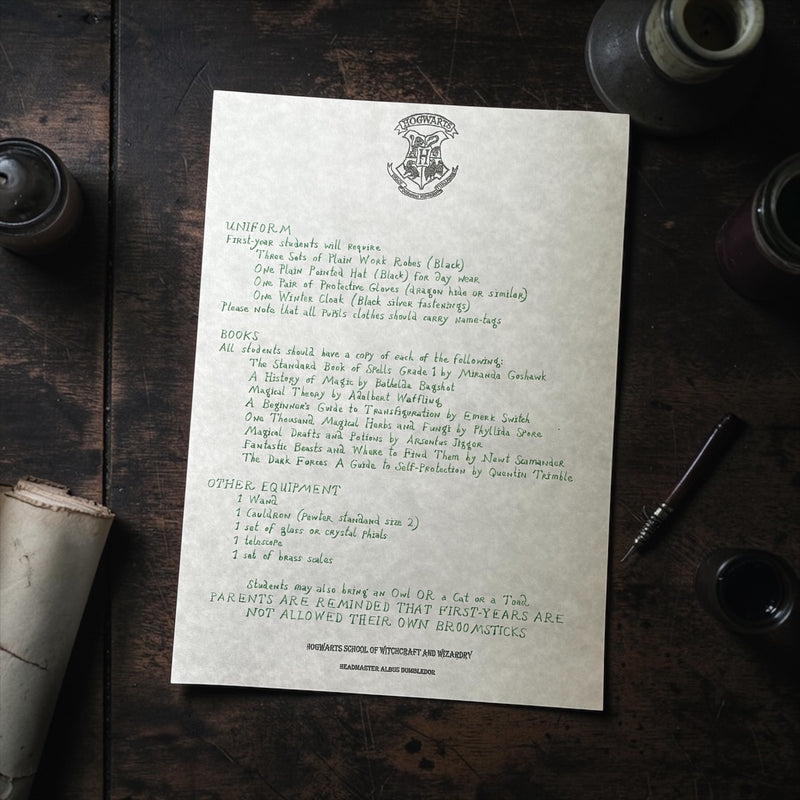 HOGWARTS
H
UNIFORM
First-year students will require
Three Sets of Plain Work Robes (Black)
One Plain Pointed Hat (Black) for day wear
One Pair of Protective Gloves (dragon hide or similar)
One Winter Cloak (Black silver fastenings)
Please note that all pupils clothes should carry name-tags
BOOKS
All students should have a copy of each of the following:
The Standard Book of Spells Grade 1 by Miranda Goshawk
A History of Magic by Bathelda Bagshot
Magical Theory by Adalbert Waffling
A Beginner's Guide to Transfiguration by Emerk Switch
One Thousand Magical Herbs and Fungi by Phyllida Spore
Magical Drafts and Potions by Arsentus Jigger
Fantastic Beasts and Where to Find Them by Newt Scamander
The Dark Forces A Guide to Self-Protection by Quentin Trimble
OTHER EQUIPMENT
1 Wand
1 Cauldron (pewter standand size 2)
1 set of glass or crystal phials
1 telescope
1 set of brass scales
Students may also bring an Owl OR a Cat or a Toad
PARENTS ARE REMINDED THAT FIRST-YEARS ARE
NOT ALLOWED THEIR OWN BROOMSTICKS
HOGWARTS SCHOOL OF WITCHCRAFT AND WIZARDRY
HEADMASTER ALBUS DUMBLEDOR